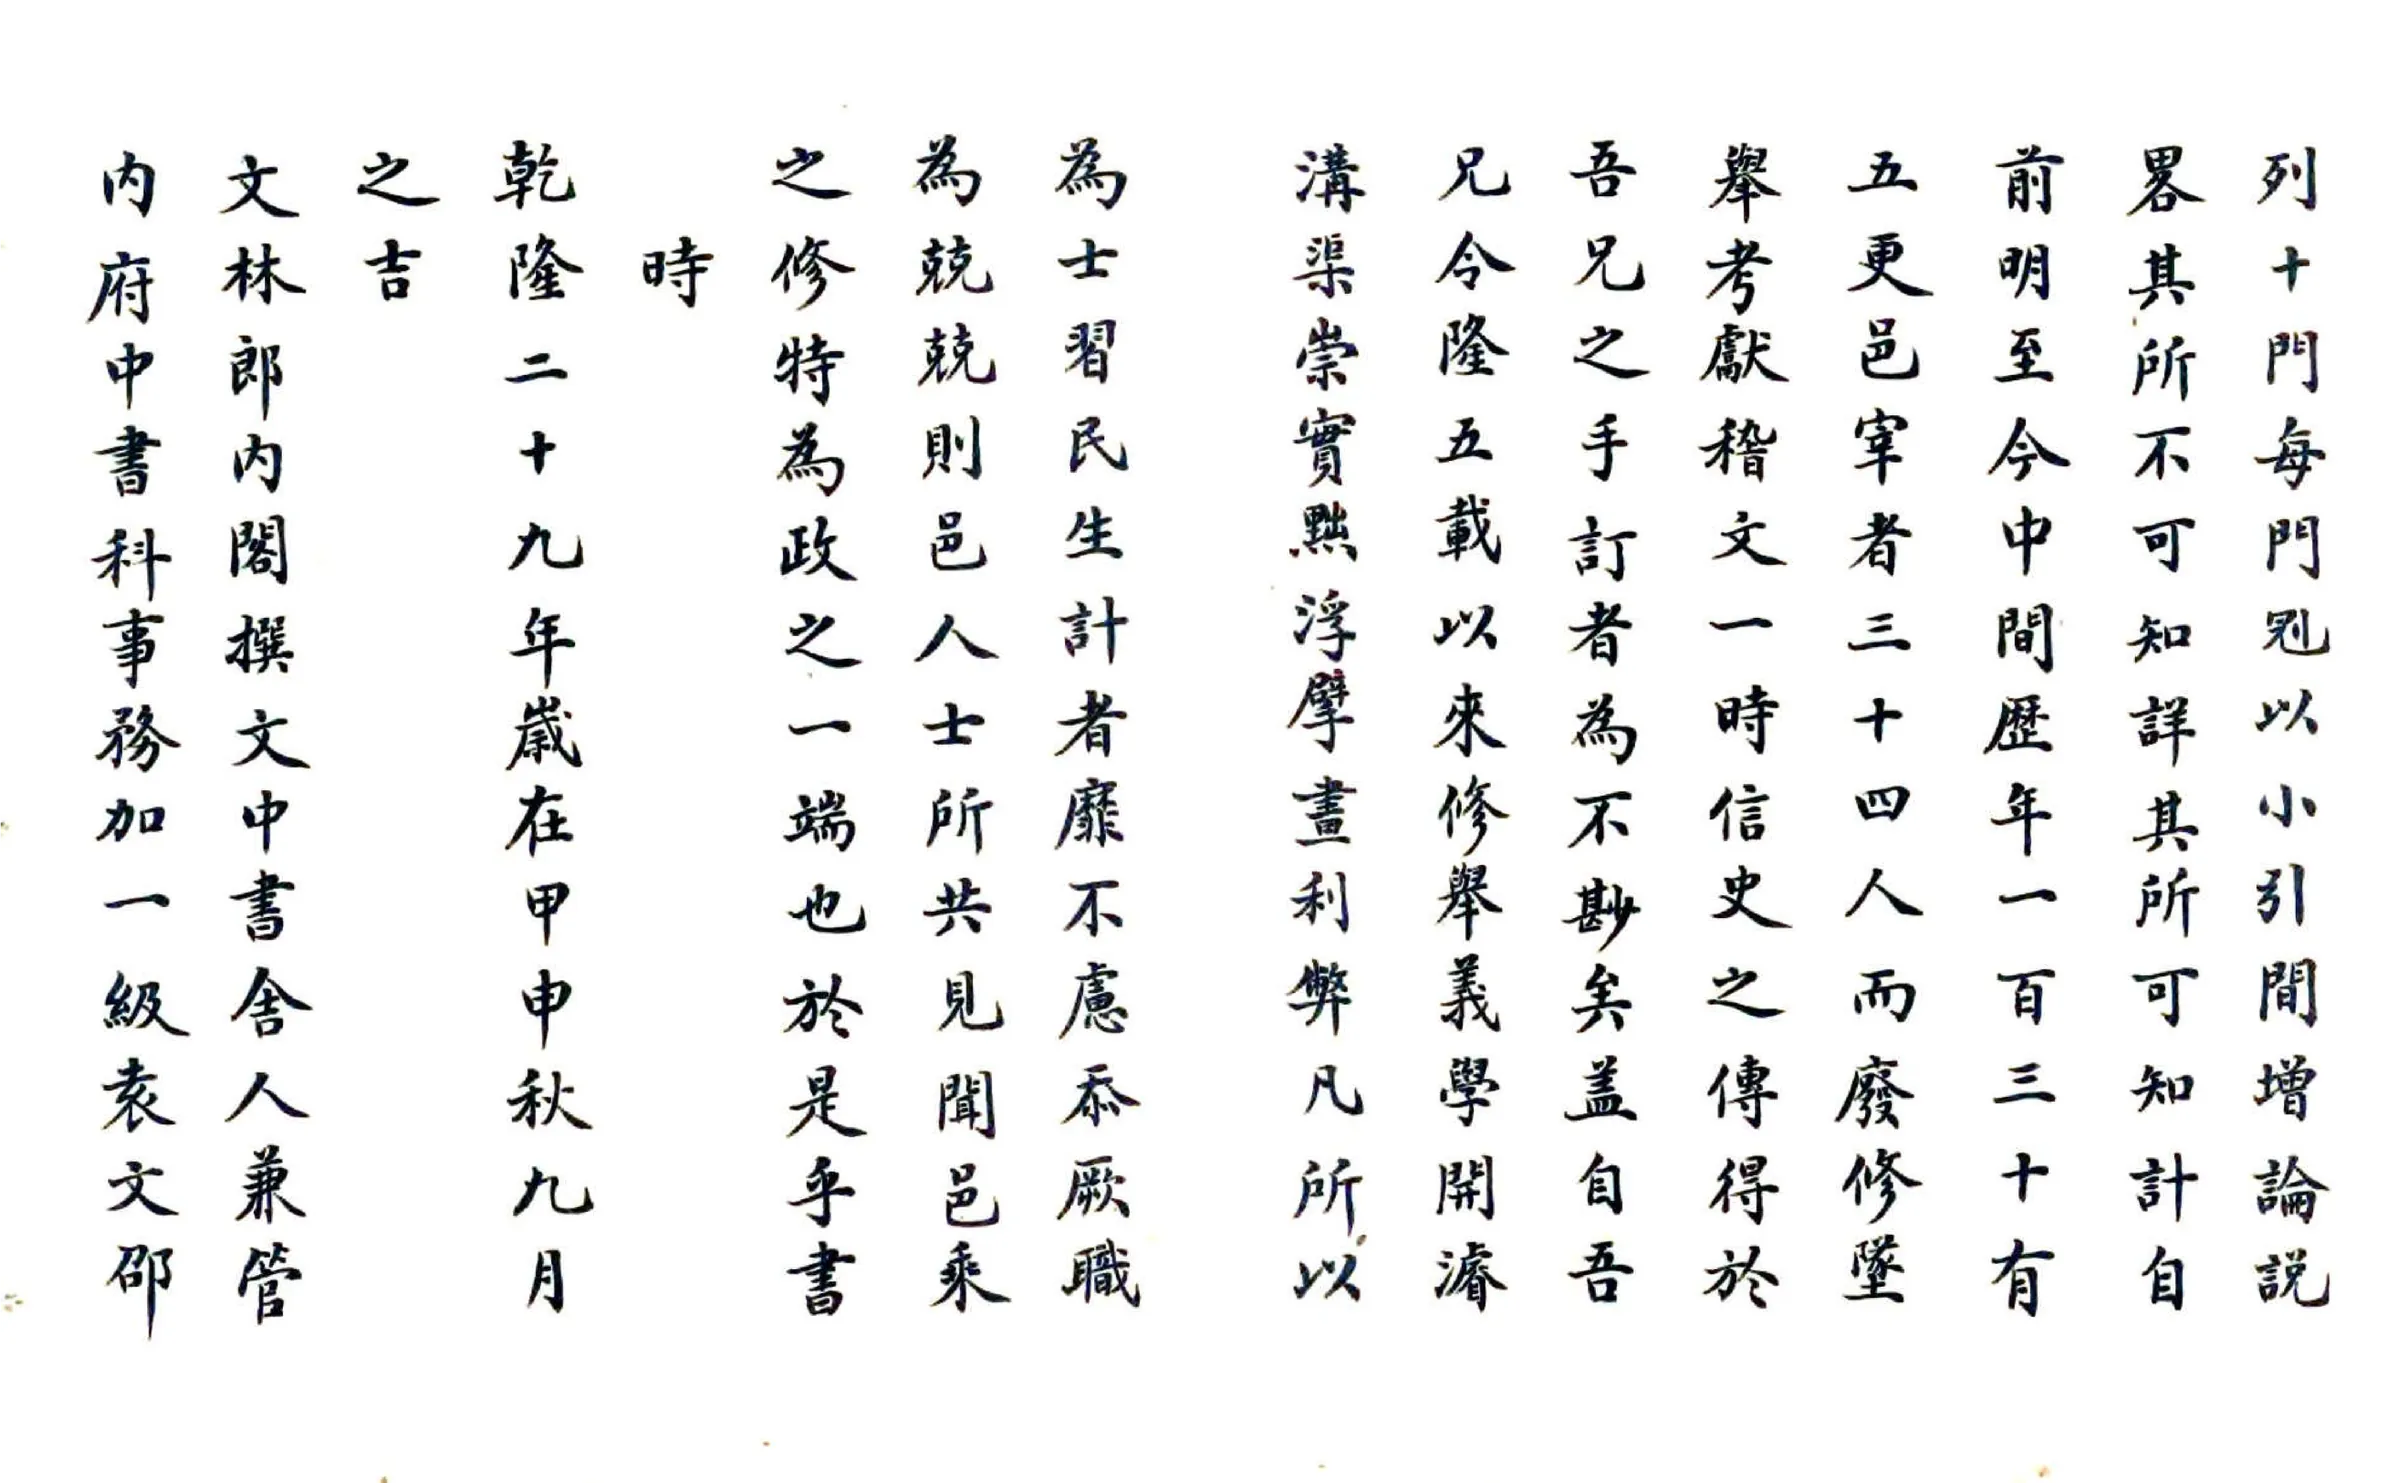 列十門每門冠以小引間增論説
畧其所不可知詳其所可知計自
前明至今中間歴年一百三十有
五更邑宰者三十四人而廢修墜
舉考獻稽文一時信史之傳得於
吾兄之手訂者為不尠矣盖自吾
兄令隆五載以來修舉義學開濬
溝渠崇實黜浮擘畫利弊凡所以
為士習民生計者靡不慮忝厥職
為兢兢則邑人士所共見聞邑乘
之修特為政之一端也於是乎書
時
乾隆二十九年歲在甲申秋九月
之吉
文林郎内閣撰文中書舍人兼管
内府中書科事務加一級袁文邵